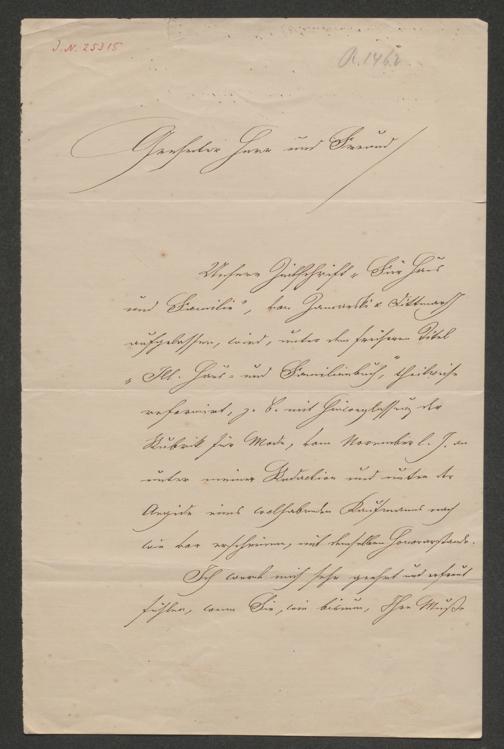 J. N. 25315
A. 1462
Geehrter Herr und Freund
Unsere Zeitschrift „Für Haus
und Familie", von Zamarski & Dittmarsch
aufgelassen, wird, unter dem früheren Titel
„Ill. Haus- und Familienbuch", theilweise
reformirt, z. B. mit Hinweglassung der
Rubrik für Mode, vom November l. J. an
unter meiner Redaction und unter der
Aegide eines wolhabenden Kaufmanns nach
wie vor erscheinen, mit demselben Honorarstande.
Ich werde mich sehr geehrt und erfreut
fühlen, wenn Sie, wie bisher, Ihre Muße